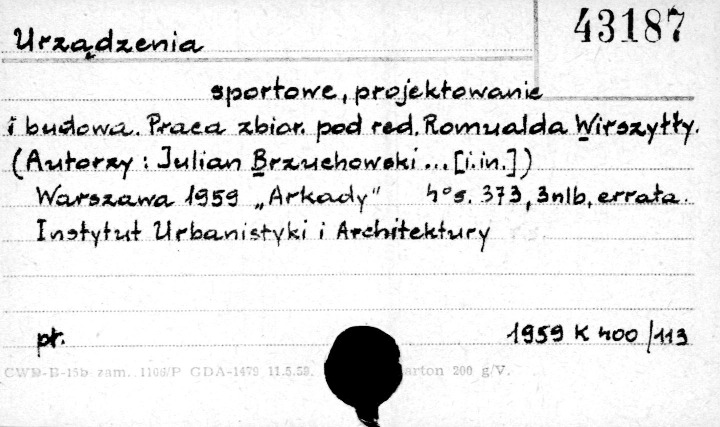 43187
Urządzenia
sportowe, projektowanie
i budowa. Praca zbior. pod red. Romualda Wirszyłły.
(Autorzy: Julian Brzuchowski ... [i.in.])
Warszawa 1959 „Arkady" 4° s. 373, 3nlb, errata.
Instytut Urbanistyki i Architektury
pł. 1959 K 400/113
CWD-B-15b zam. 1106/P GDA-1479 11.5.59. arton 200 g/V.